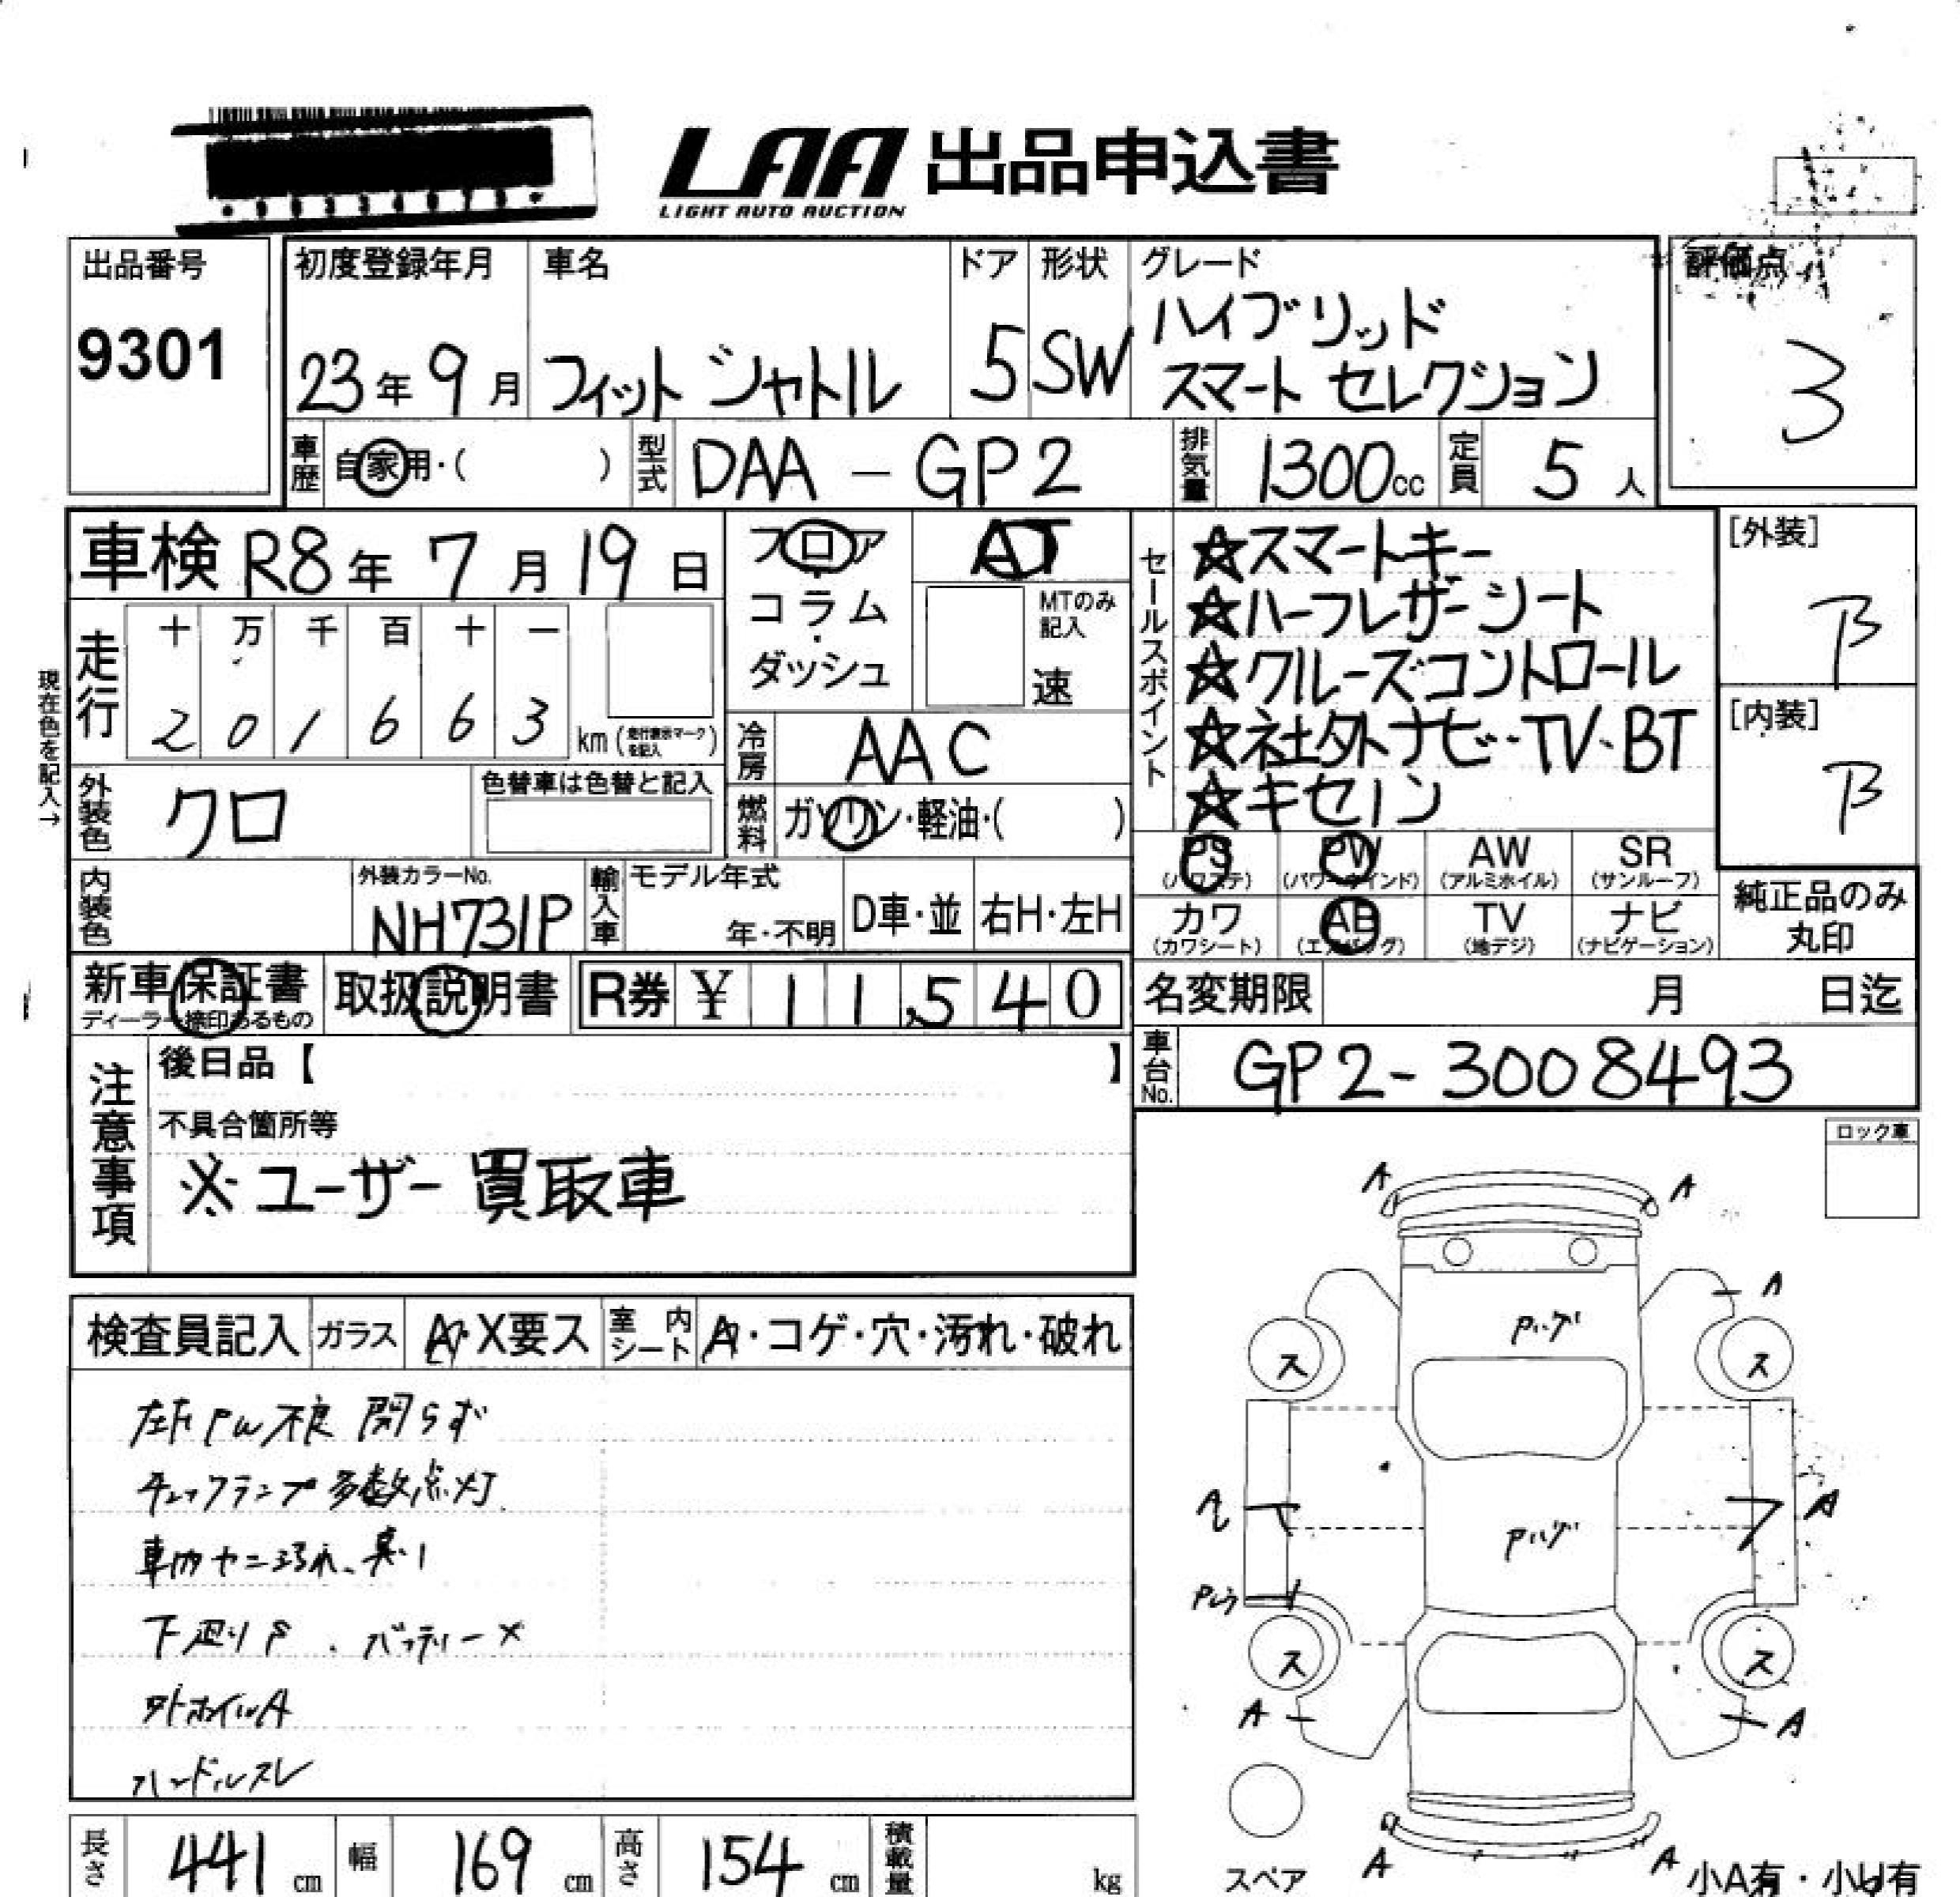 LAA 出品申込書
LIGHT AUTO AUCTION
出品番号
9301
初度登録年月
23年9月
車名
フィット シャトル
ドア
5
形状
SW
グレード
ハイブリッド
スマート セレクション
評価点
3
車歴 自家用・( )
型式 DAA-GP2
排気量 1300cc
定員 5人
車検 R8年7月19日
フロア・コラム・ダッシュ
AT
MTのみ記入
速
現在色を記入→
走行 十 万 千 百 十 一
2 0 1 6 6 3 km (走行表示マークを記入)
冷房 AAC
燃料 ガソリン・軽油・( )
外装色 クロ
色替車は色替と記入
内装色
外装カラーNo.
NH731P
輸入車 モデル年式
年・不明
D車・並
右H・左H
セールスポイント
☆スマートキー
☆ハーフレザーシート
☆クルーズコントロール
☆社外ナビ・TV・BT
☆キセノン
[外装]
B
[内装]
B
PS (パワステ) PW (パワーウインド) AW (アルミホイル) SR (サンルーフ)
カワ (カワシート) AB (エアバッグ) TV (地デジ) ナビ (ナビゲーション)
純正品のみ丸印
新車保証書
ディーラー捺印あるもの
取扱説明書
R券 ¥ 11,540
名変期限 月 日迄
車台No. GP2-3008493
注意事項
後日品【 】
不具合箇所等
※ユーザー買取車
ロック車
検査員記入 ガラス A・X要ス 室内シート A・コゲ・穴・汚れ・破れ
PW不良 閉らず
チェックランプ多数点灯
車内ヤニ汚れ、臭い
下廻りS、バッテリーX
外ホイルA
ハンドルスレ
A A
A
Pハゲ
ス ス
A A
Pハゲ
ス ス
A A
A A
スペア
小A有・小U有
長さ 441 cm
幅 169 cm
高さ 154 cm
積載量 kg